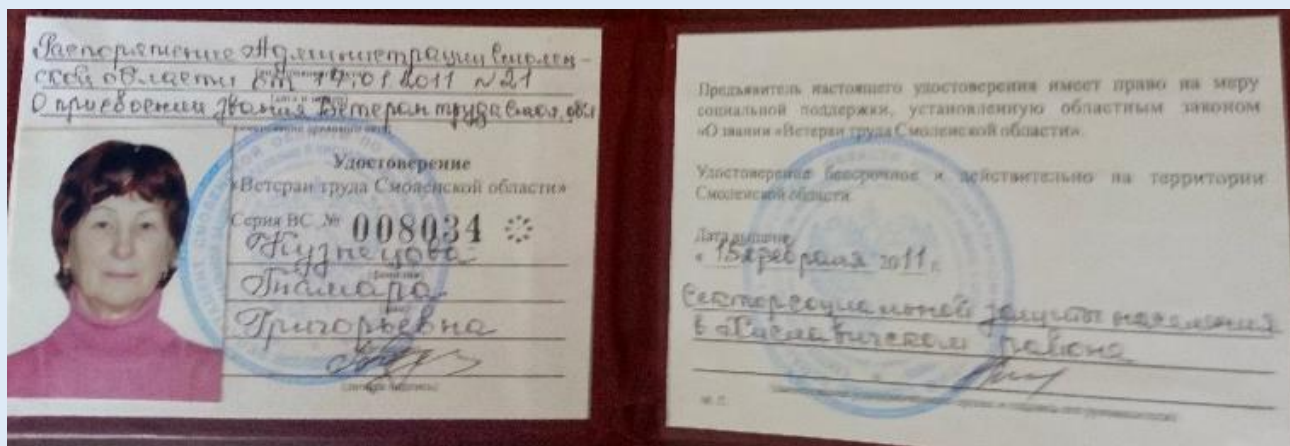 Распоряжение Администрации Смолен-
ской области от 19.01.2011 №21
О присвоении звания Ветеран труда Смол. обл
Удостоверение
«Ветеран труда Смоленской области»
Серия ВС № 008034
Кузнецова
Тамара
Григорьевна
(личная подпись)
Предъявитель настоящего удостоверения имеет право на меру
социальной поддержки, установленную областным законом
«О звании «Ветеран труда Смоленской области».
Удостоверение бессрочное и действительно на территории
Смоленской области.
Дата выдачи
« 15 » февраля 2011 г.
Сектор социальной защиты населения
в Хиславичском районе
М.П.